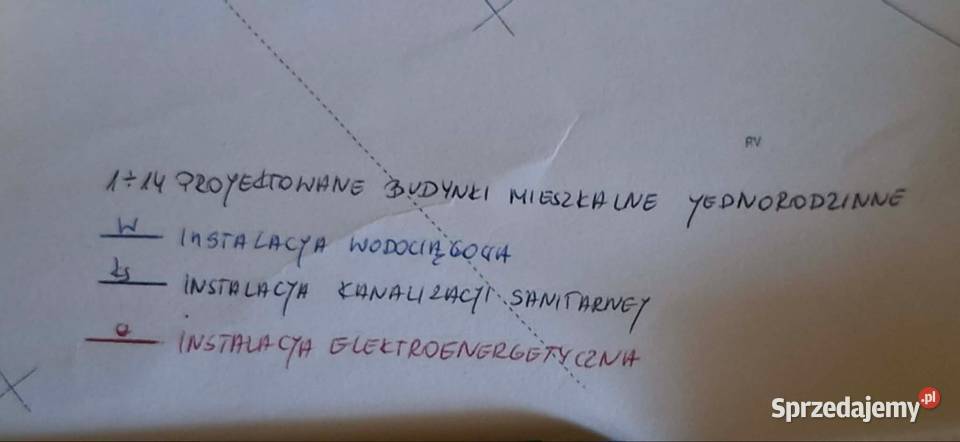 RV
1÷14 PROYEKTOWANE BUDYNKI MIESZKALNE YEDNORODZINNE
W INSTALACYA WODOCIĄGOWA
ks INSTALACYA KANALIZACYI SANITARNEY
e INSTALACYA ELEKTROENERGETYCZNA
Sprzedajemy.pl